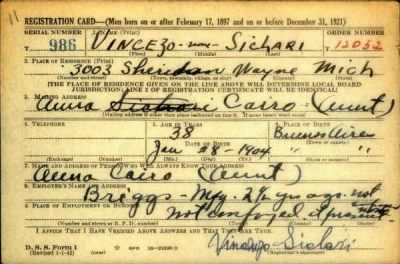 11
REGISTRATION CARD—(Men born on or after February 17, 1897 and on or before December 31, 1921)
SERIAL NUMBER 1. NAME (Print) ORDER NUMBER
986 VINCEZO -none- SICHARI 12052
(First) (Middle) (Last)
2. PLACE OF RESIDENCE (Print)
3003 Sheridan Wayne Mich
(Number and street) (Town, township, village, or city) (County) (State)
[THE PLACE OF RESIDENCE GIVEN ON THE LINE ABOVE WILL DETERMINE LOCAL BOARD
JURISDICTION; LINE 2 OF REGISTRATION CERTIFICATE WILL BE IDENTICAL]
3. MAILING ADDRESS
Anna Sichari Cairo (Aunt)
[Mailing address if other than place indicated on line 2. If same insert word same]
4. TELEPHONE 5. AGE IN YEARS 6. PLACE OF BIRTH
38 Buenos Aires
DATE OF BIRTH (Town or county)
Jan 28 - 1904 " "
(Exchange) (Number) (Mo.) (Day) (Yr.) (State or country)
7. NAME AND ADDRESS OF PERSON WHO WILL ALWAYS KNOW YOUR ADDRESS
Anna Cairo (Aunt)
8. EMPLOYER'S NAME AND ADDRESS
Briggs - Mfg. 2½ yrs ago - not
9. PLACE OF EMPLOYMENT OR BUSINESS
not employed at present
(Number and street or R. F. D. number) (Town) (County) (State)
I AFFIRM THAT I HAVE VERIFIED ABOVE ANSWERS AND THAT THEY ARE TRUE.
D. S. S. Form 1
(Revised 1-1-42) (over)
Vincenzo Sichari
(Registrant's signature)